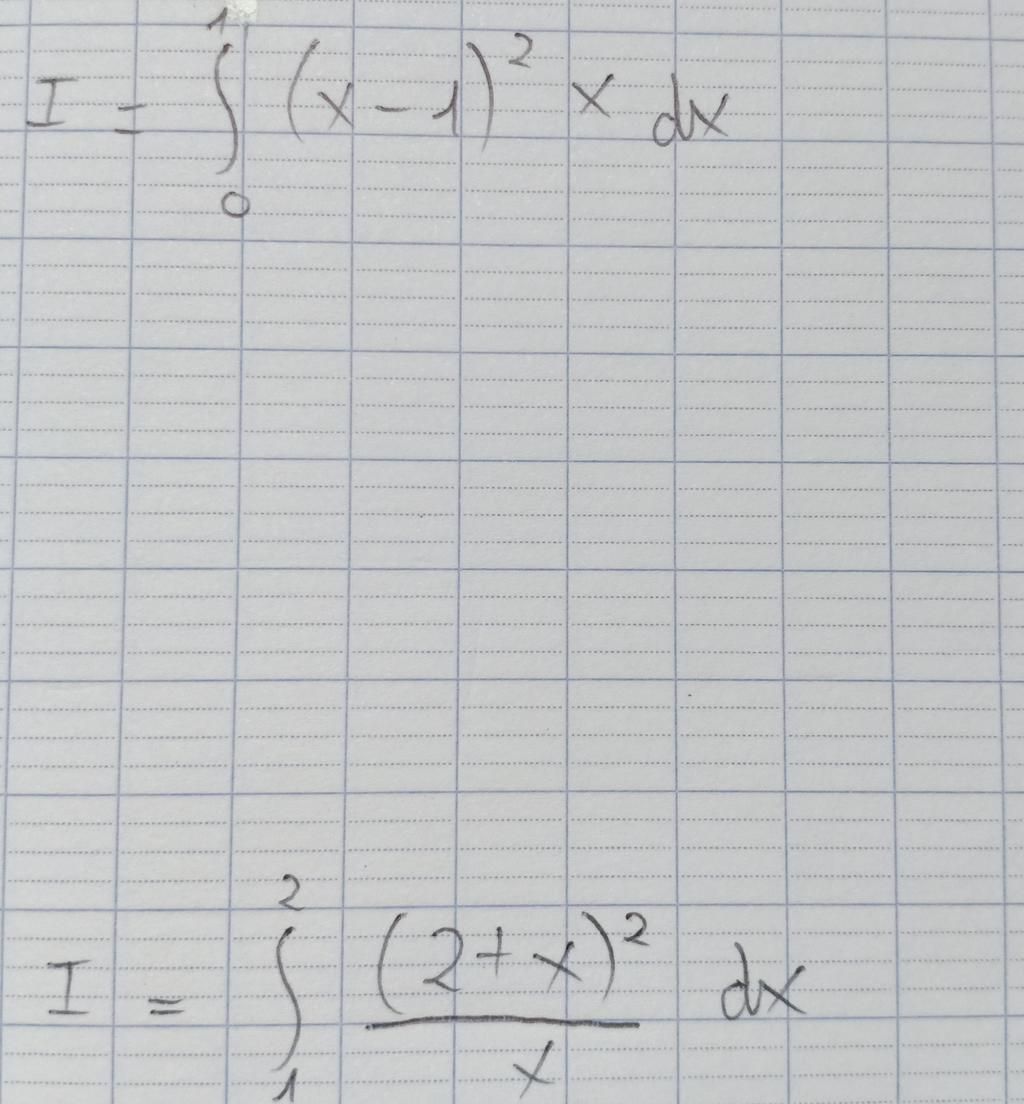 I = ∫₀¹ (x - 1)² x dx
I = ∫₁² (2 + x)² / x dx